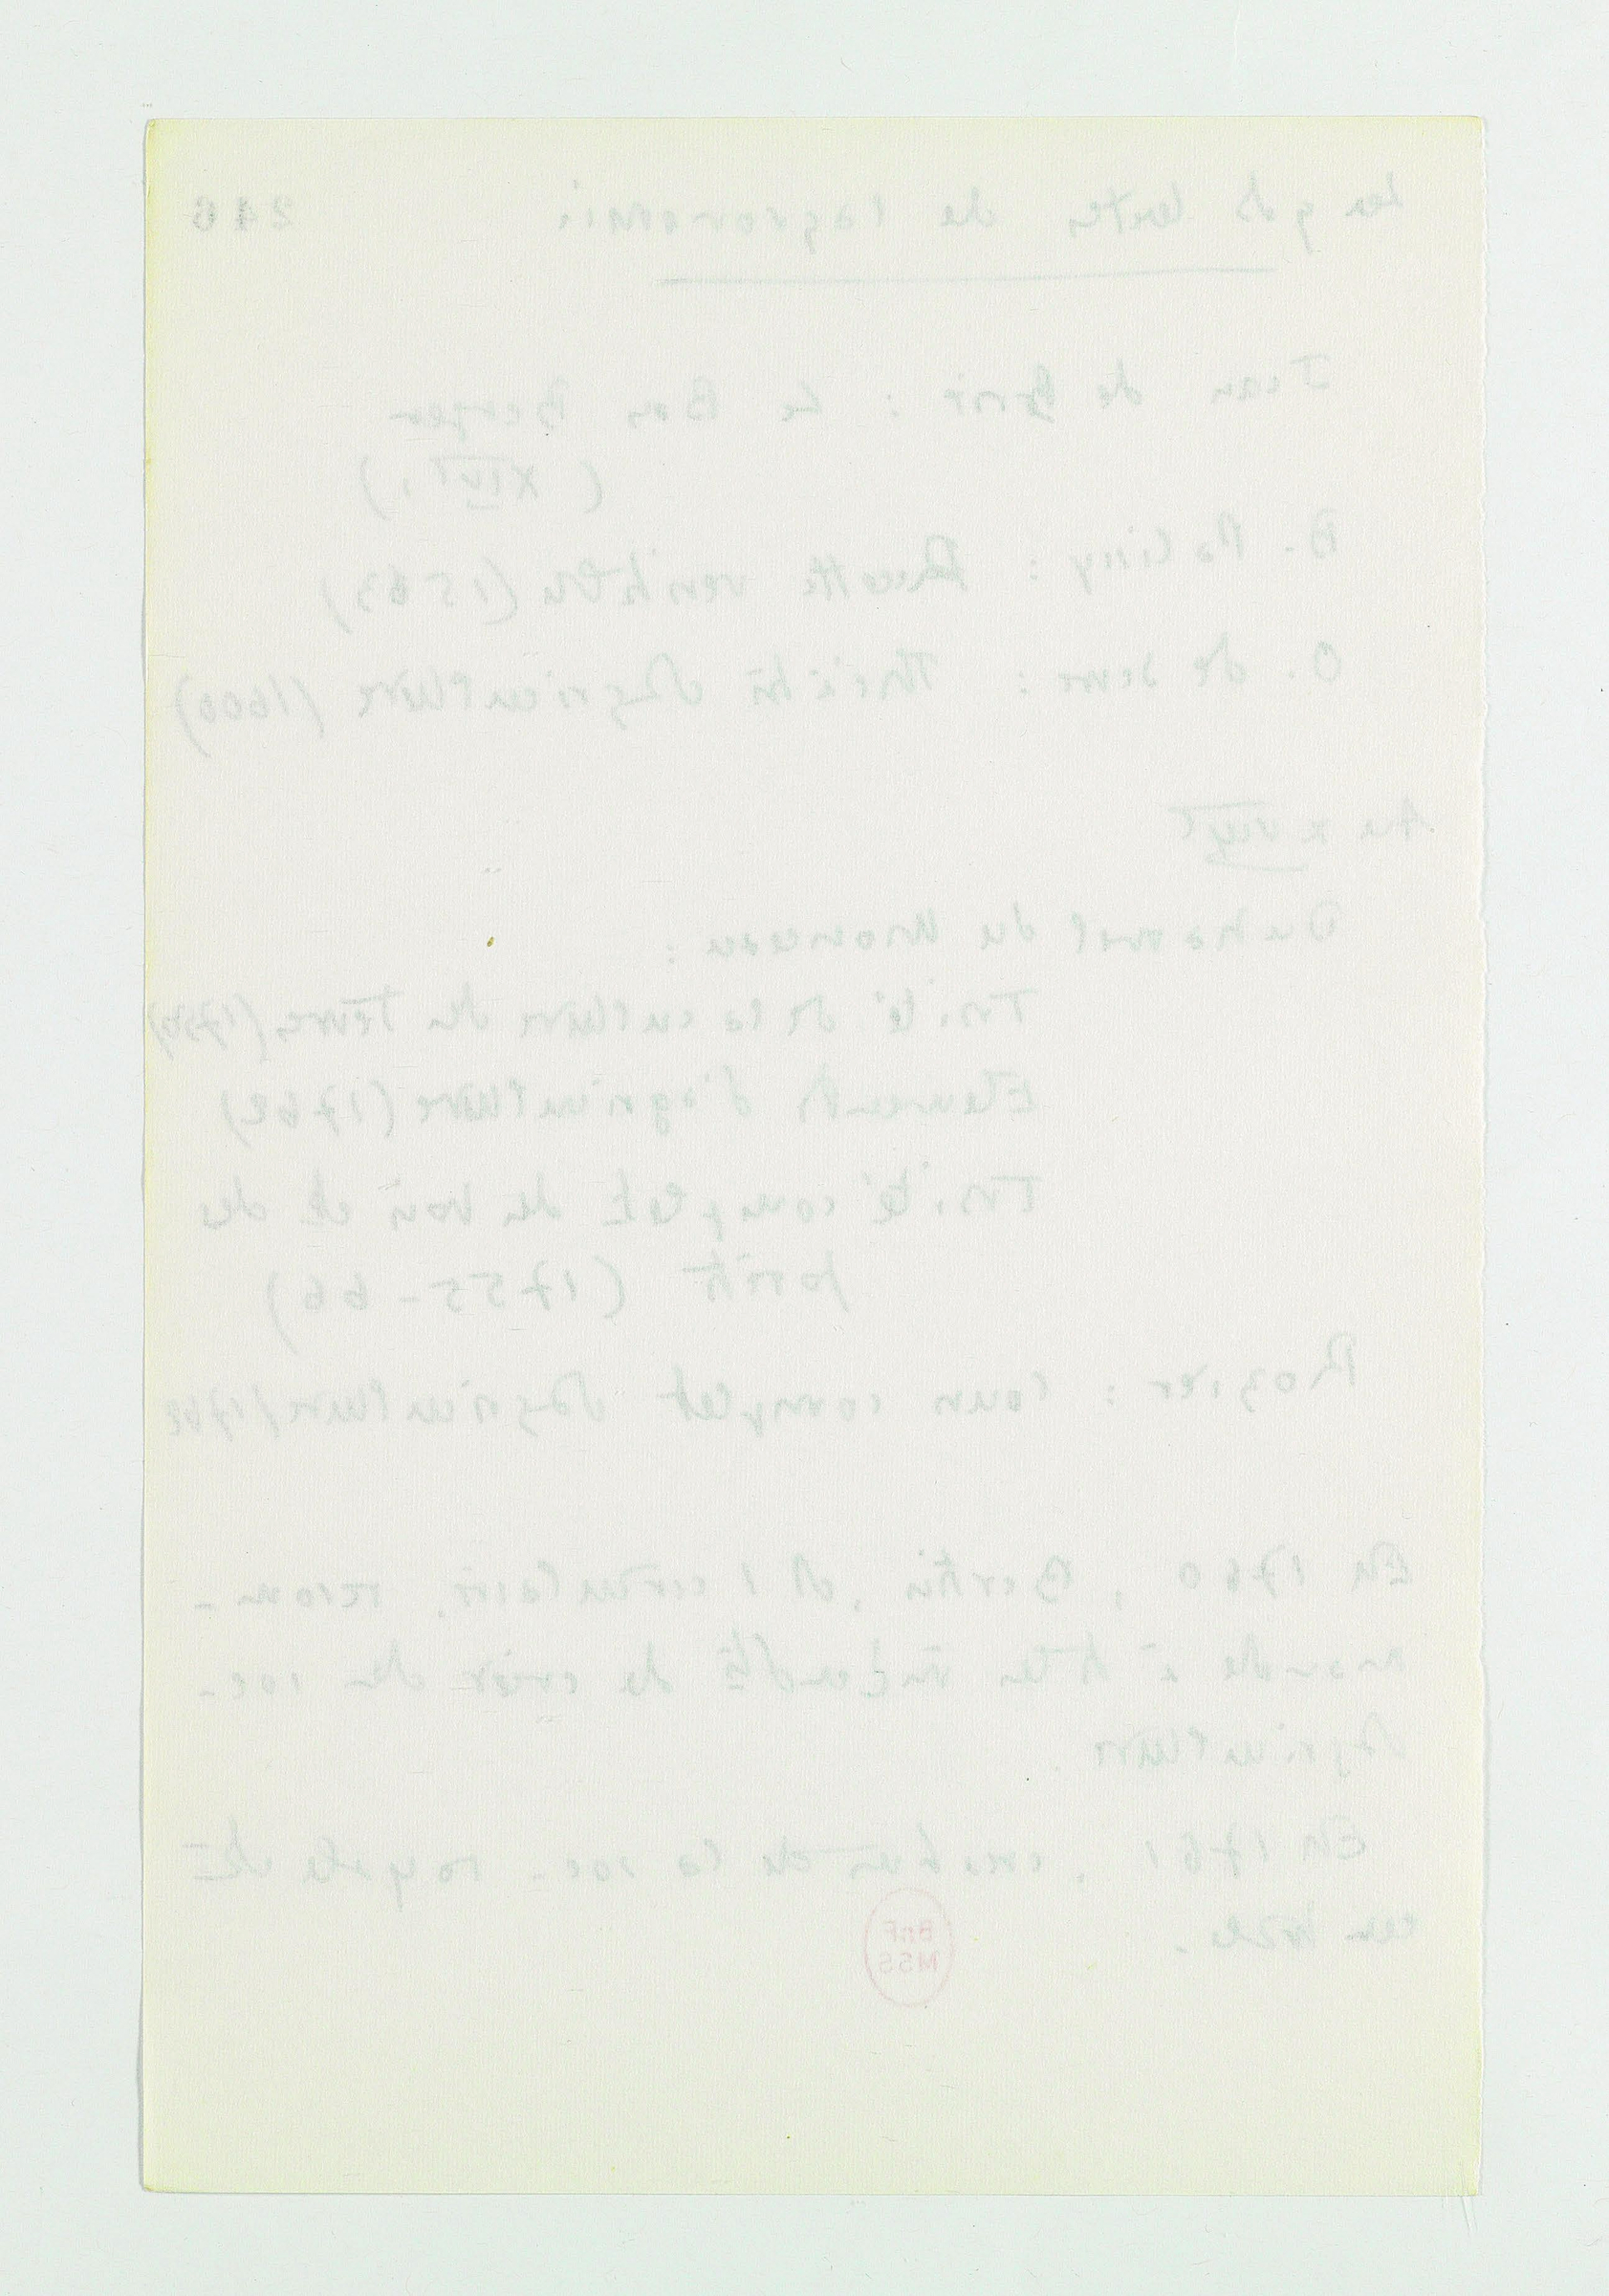 Les gds textes de l'agronomie 246
Jean de Brie : Le Bon Berger
(XIVe s.)
B. Palissy : Recette veritable (1563)
O. de Serres : Théâtre d'Agriculture (1600)
Au XVIIIe
Duhamel du Monceau :
Traité de la culture des Terres (1750)
Elements d'agriculture (1762)
Traité complet des bois et des
forêts (1755-66)
Rozier : Cours complet d'Agriculture
En 1760, Bertin, ds 1 circulaire, recom-
mande à de créer des soc.
d'Agriculture.
En 1761, de la soc. royale
BnF
MSS